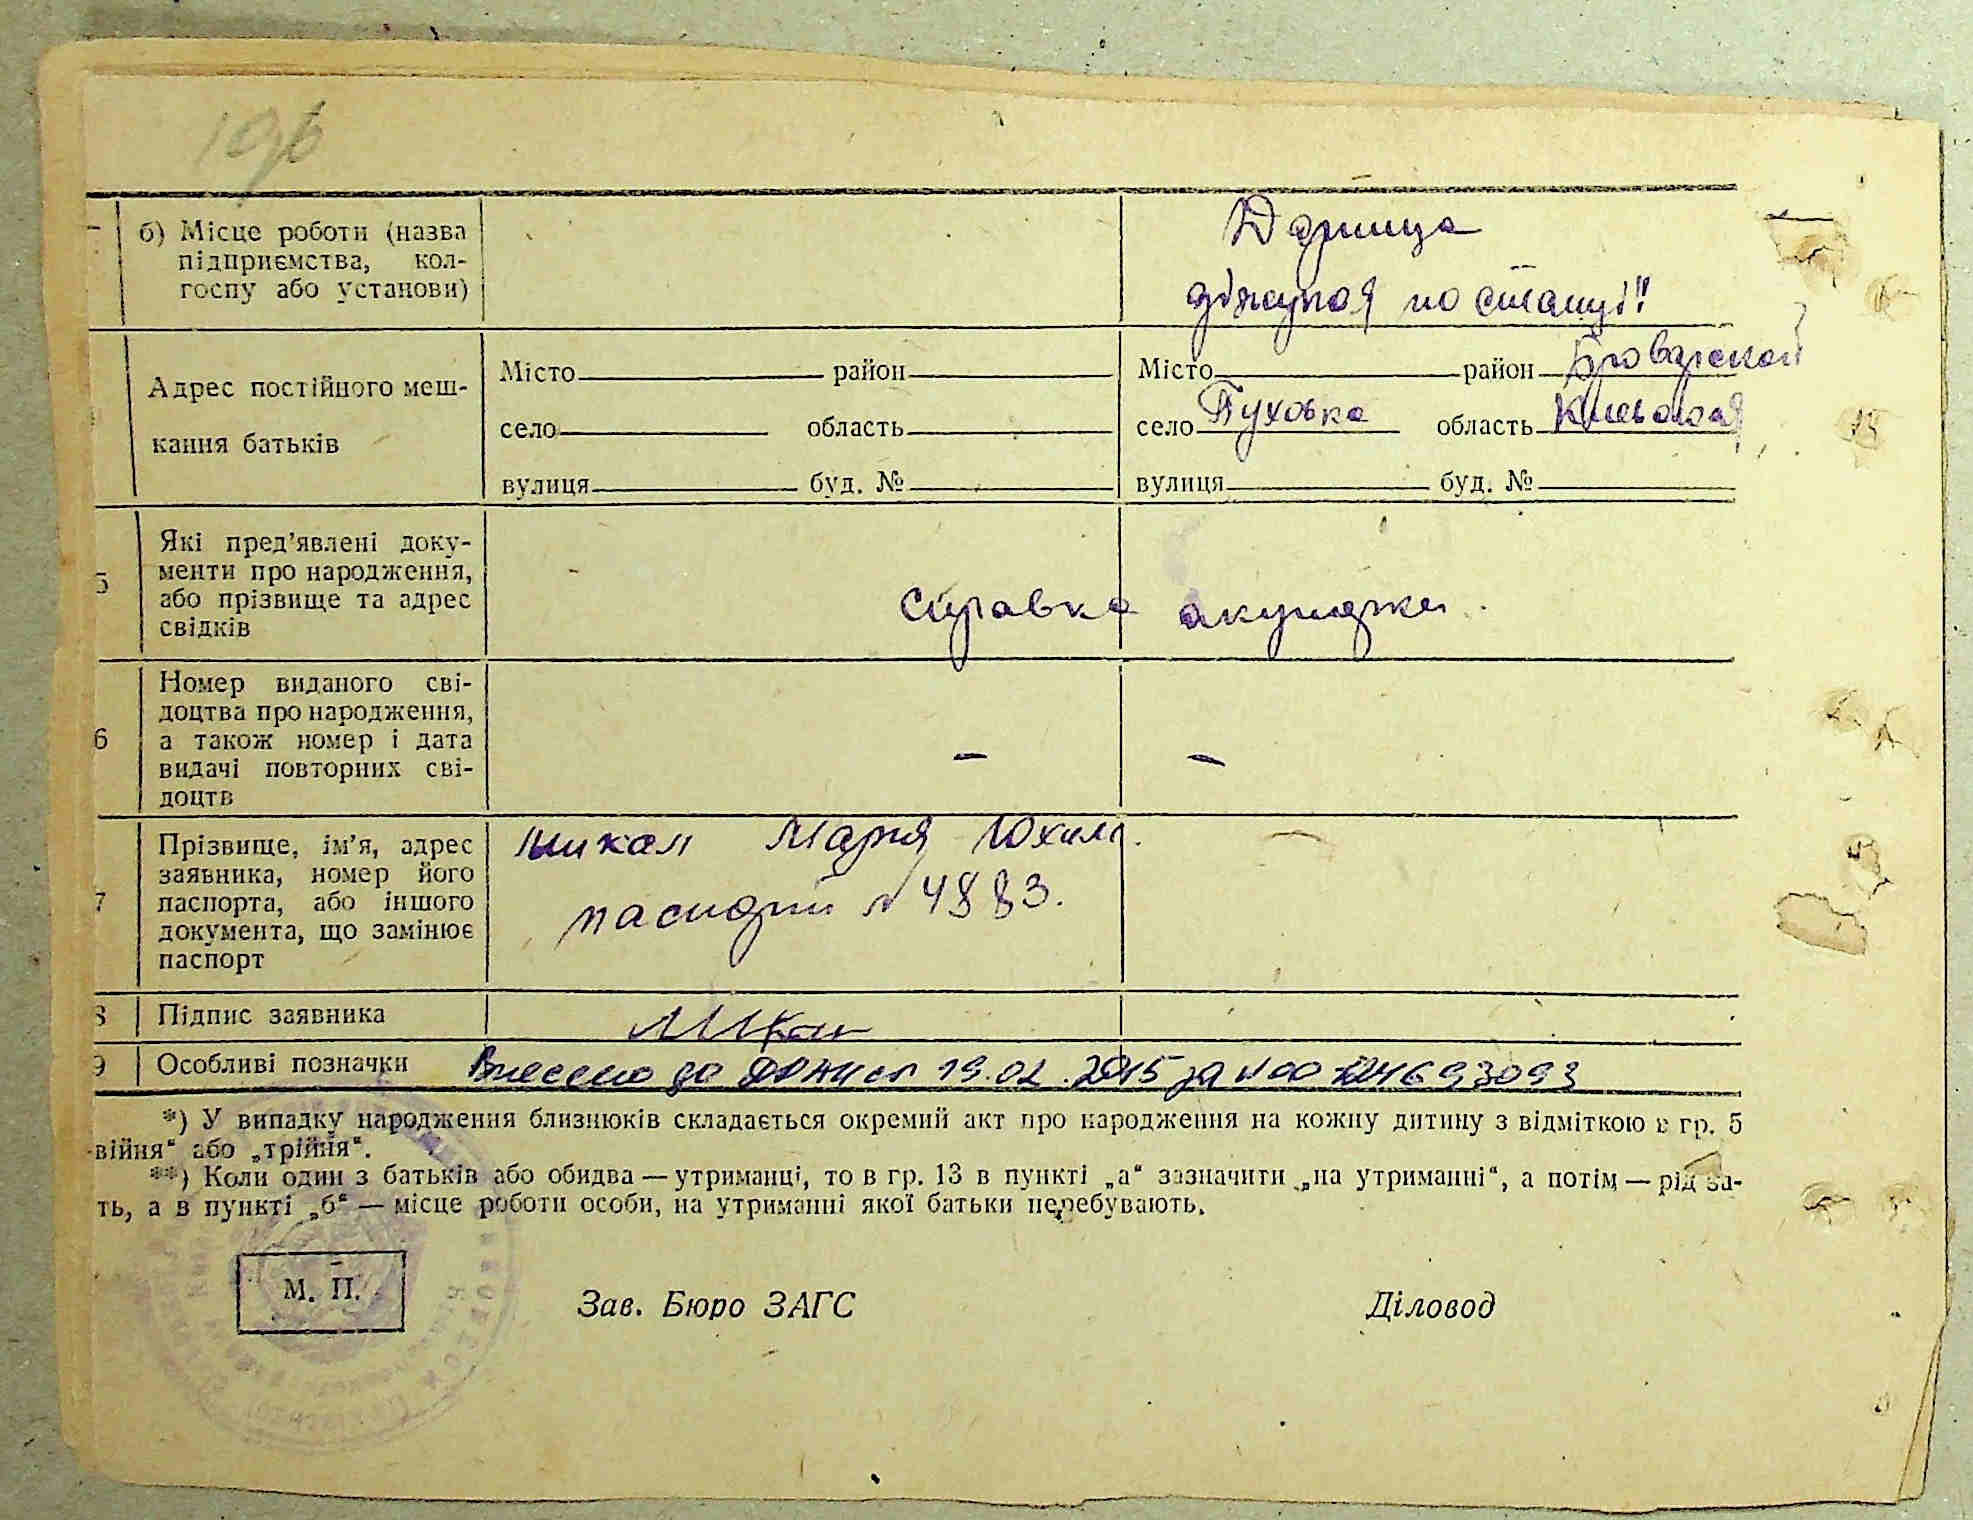 196
б) Місце роботи (назва
підприємства, кол-
госпу або установи)
Дарница
по станції"
Адрес постійного меш-
кання батьків
Місто район
село область
вулиця буд. №
Місто район Броварской
село Пуховка область Киевская
вулиця буд. №
5
Які пред'явлені доку-
менти про народження,
або прізвище та адрес
свідків
справка акушерки
6
Номер виданого сві-
доцтва про народження,
а також номер і дата
видачі повторних сві-
доцтв
– –
7
Прізвище, ім'я, адрес
заявника, номер його
паспорта, або іншого
документа, що замінює
паспорт
Шикал Мария Юхим.
паспорт № 4883.
8 Підпис заявника
9 Особливі позначки Внесено до ДРАЦСГ 19.02.2015 за №
*) У випадку народження близнюків складається окремий акт про народження на кожну дитину з відміткою в гр. 5
війня" або „трійня".
**) Коли один з батьків або обидва — утриманці, то в гр. 13 в пункті „а" зазначити „на утриманні", а потім — рід за-
ть, а в пункті „б" — місце роботи особи, на утриманні якої батьки перебувають.
М. П.
Зав. Бюро ЗАГС Діловод